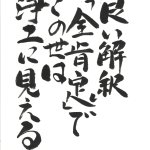 良い解釈
「全肯定」で
この世は
浄土に見える